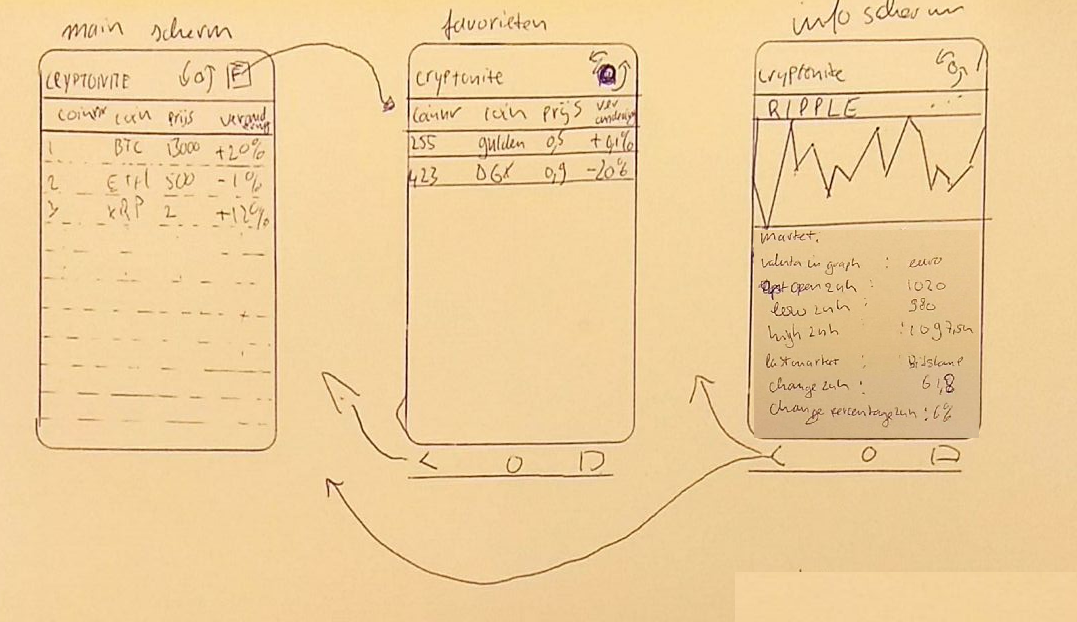 main scherm
CRYPTONITE F
coinnr coin prijs verandering
1 BTC 13000 +20%
2 ETH 500 -1%
3 XRP 2 +12%
favorieten
cryptonite
coinnr coin prijs verandering
255 gulden 0,5 +0,1%
423 DGX 0,9 -20%
info scherm
cryptonite
RIPPLE ...
market:
valuta in graph : euro
open 24h : 1020
low 24h : 980
high 24h : 1097,54
lastmarket : Bitstamp
change 24h : 61,8
change percentage 24h : 6%